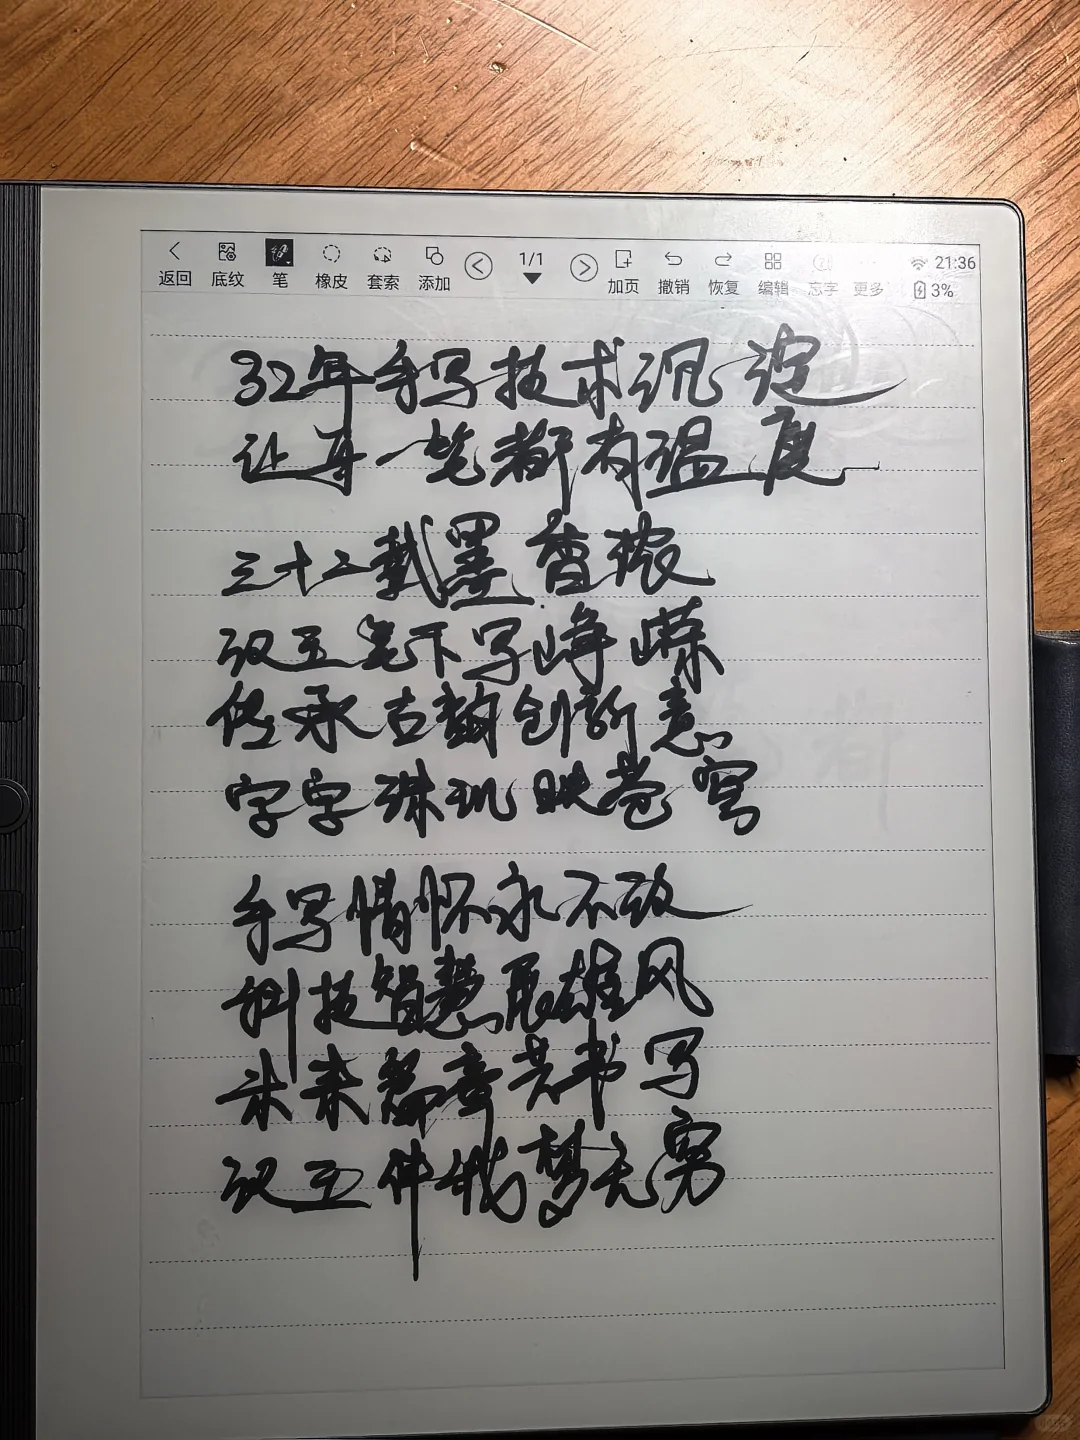 返回 底纹 笔 橡皮 套索 添加 1/1 加页 撤销 恢复 编辑 忘字 更多 21:36 3%
32年手写技术沉淀
让每一笔都有温度
三十二载墨香浓
汉王笔下写峥嵘
传承古韵创新意
字字珠玑映苍穹
手写情怀永不改
科技智慧展雄风
未来篇章共书写
汉王伴我梦无穷